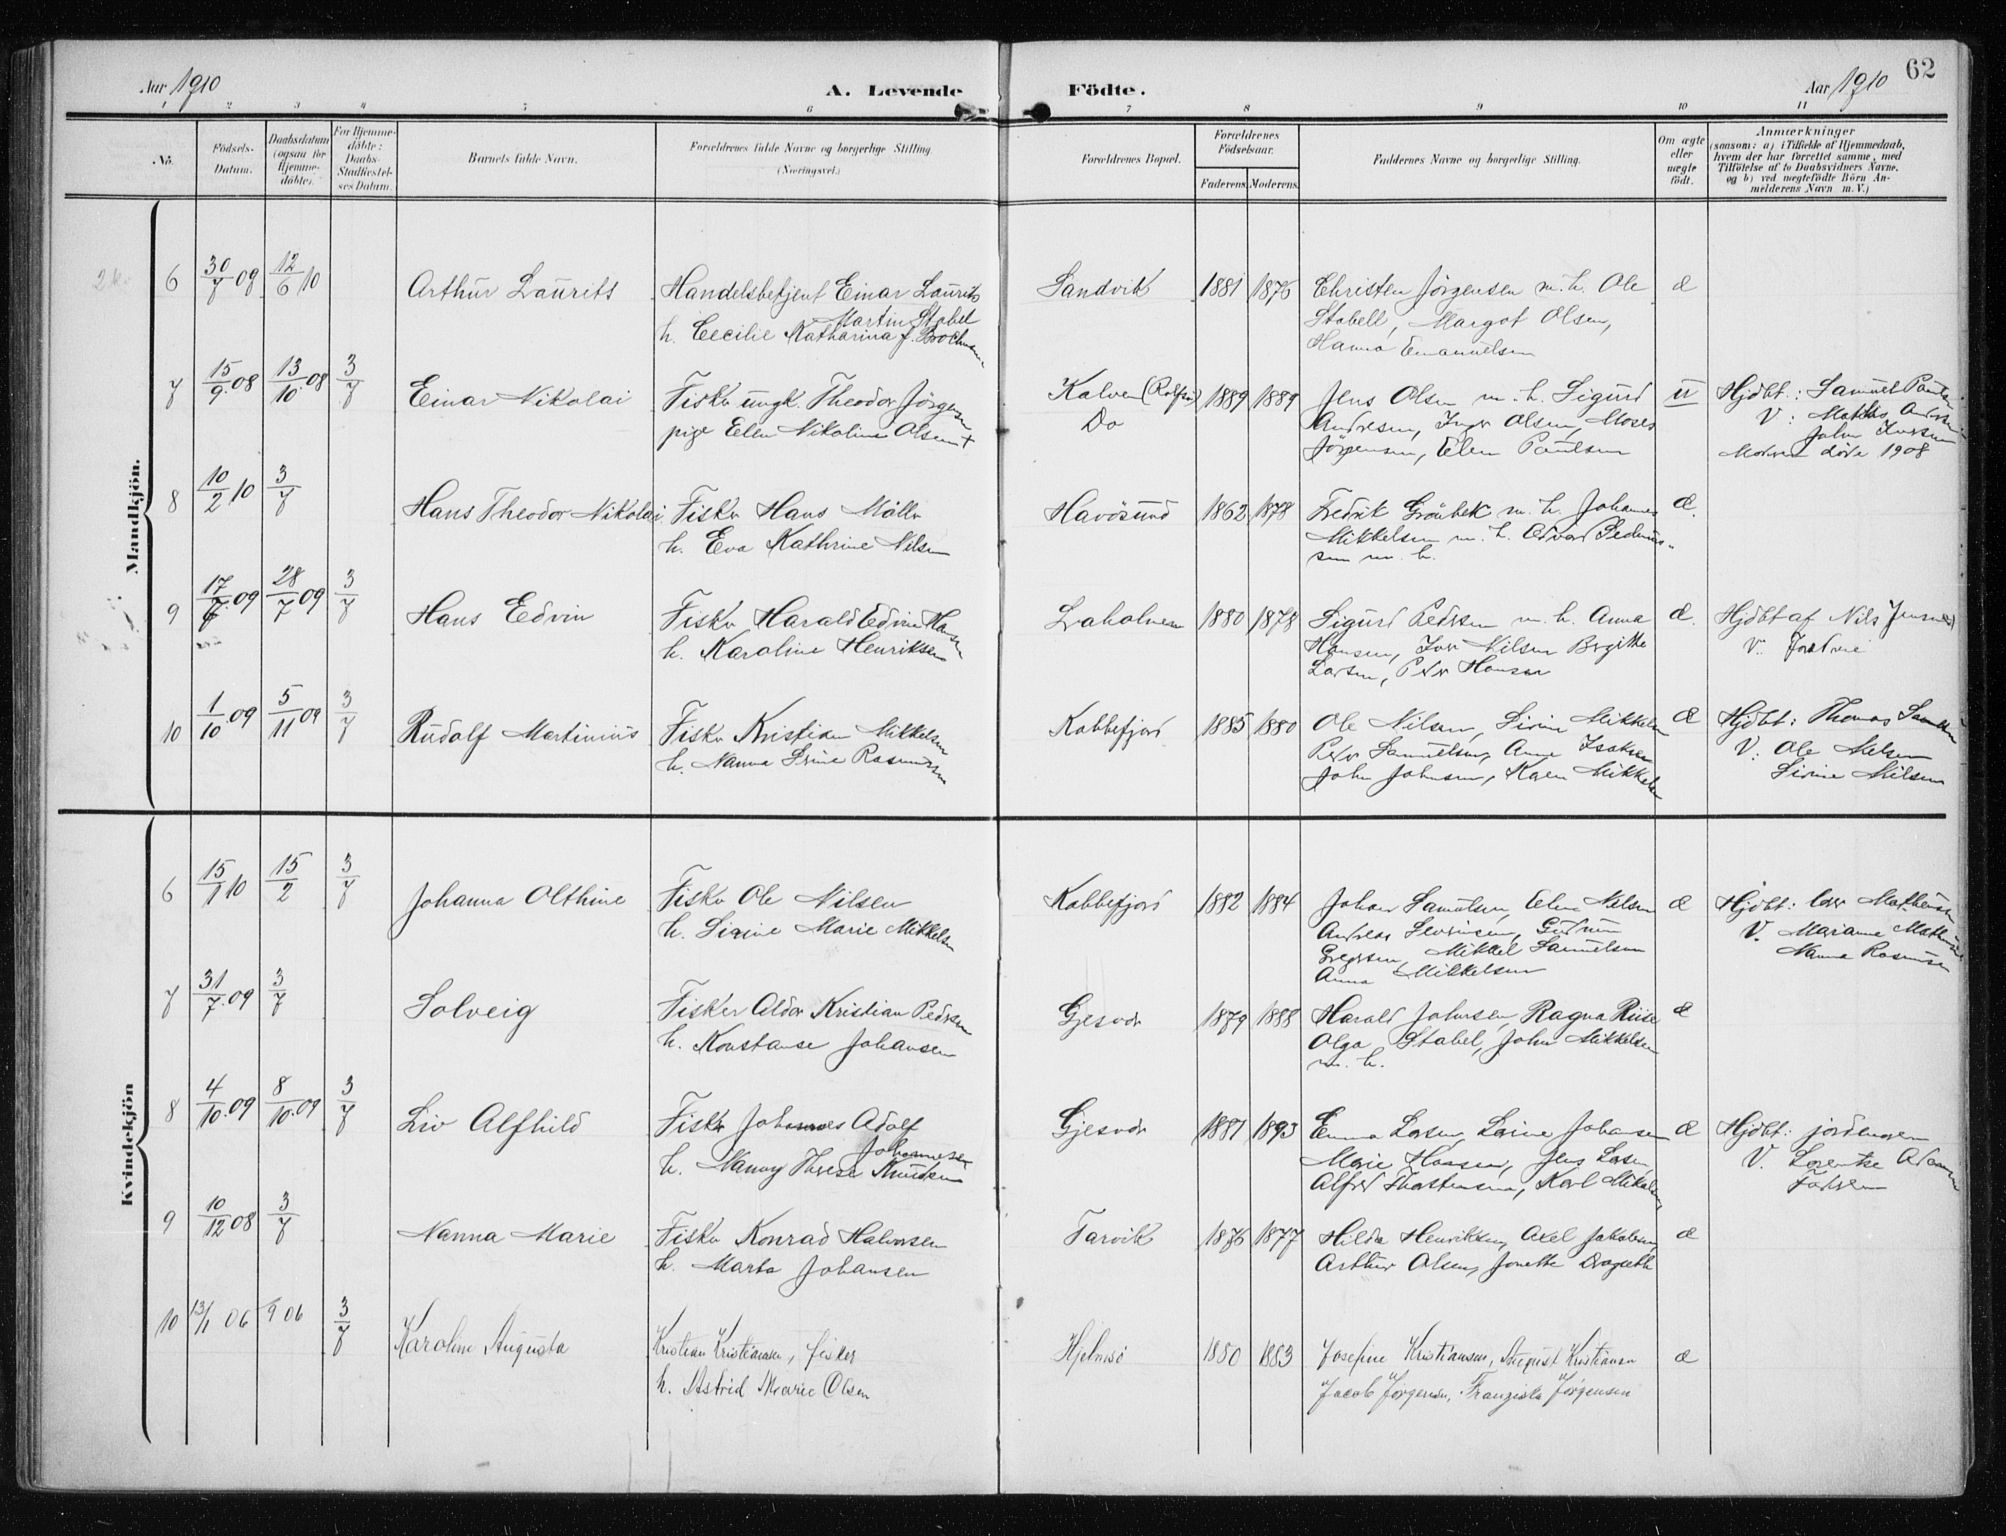 62
Aar 1910
A. Levende Födte.
Aar 1910
1 2 3 4 5 6 7 8 9 10 11
No.
Födsels-Datum.
Daabsdatum (ogsaa for Hjemme-döbte).
For Hjemme-döbte: Daabs-Stadfæstel-ses Datum.
Barnets fulde Navn.
Forældrenes fulde Navne og borgerlige Stilling.
(Næringsvei.)
Forældrenes Bopæl.
Forældrenes Födselsaar.
Faderens. Moderens.
Faddernes Navne og borgerlige Stilling.
Om ægte eller uægte födt.
Anmærkninger
(saasom: a) i Tilfælde af Hjemmedaab,
hvem der har forrettet samme, med
Tilföielse af to Daabsvidners Navne.
og b) ved uægtefödte Börn An-
melderens Navn m. V.)
Mandkjön.
6 30/7 09 12/6 10 Arthur Laurits Handelsbetjent Einar Laurits Sandvik 1881 1876 Christen Jörgensen m. h. Ole æ
Martin Stabel Stabell, Margot Olsen,
h. Cecilie Katharina f. Hanna Emanuelsen
7 15/9 08 13/10 08 3/7 Einar Nikolai Fisker ungk. Theodor Jörgensen Kalven 1889 1889 Jens Olsen m. h. Sigurd u Hjdbt: Samuel
pige Elen Nikoline Olsen + Do Andresen, Inger Olsen, Moses V:
Jörgensen, Elen Paulsen John
Moderen döde 1908
8 10/2 10 3/7 Hans Theodor Nikolai Fisker Hans Möller Havösund 1862 1878 Fredrik Grönbek m. h. Johannes æ.
h. Eva Kathrine Nilsen Mikkelsen m. h. Edvard
m. h.
9 17/6 09 28/7 09 3/7 Hans Edvin Fisker Harald Edvin Hansen Laholmen 1880 1878 Sigurd Pedersen m. h. Anna æ. Hjdbt af Nils Jensen
h. Karoline Henriksen Hansen, Iver Nilsen Bergitte V:
Larsen, Peder Hansen
10 1/10 09 5/11 09 3/7 Rudolf Martinius Fisker Kristian Mikkelsen Kobbefjord 1885 1880 Ole Nilsen, Sirine Mikkelsen æ Hjdbt: Thomas
h. Nanna Sirine Rasmussen Peder Samuelsen, Anne Isaksen V: Ole Nilsen
John Johnsen, Karen Mikkelsen Sirine Nilsen
Kvindekjön
6 15/1 10 15/2 3/7 Johanna Olthine Fisker Ole Nilsen Kobbefjord 1882 1884 Johan Samuelsen, Elen Nilsen æ Hjdbt:
h. Sirine Marie Mikkelsen Andreas Severinsen, Gudrun V. Marianne
Gregersen, Mikkel Samuelsen Nanna Rasmussen
Anna Mikkelsen
7 31/7 09 3/7 Solveig Fisker Aldor Kristian Pedersen Gjesvær 1879 1888 Harald Johnsen, Ragna Riise æ
h. Konstanse Johansen Olga Stabel, John Mikkelsen
m. h.
8 4/10 09 8/10 09 3/7 Liv Alfhild Fisker Johannes Adolf Gjesvær 1881 1893 Emma Larsen, Johansen æ Hjdbt: jordemoren
Johannesen Marie Hansen, Jens Larsen V. Lorentse
h. Nanny Therese Knudsen Alfred Thorstensen, Karl Faderen
9 10/12 08 3/7 Nanna Marie Fisker Konrad Halvorsen Tarvik 1876 1877 Hilda Henriksen, Axel Jakobsen, æ
h. Marta Johansen Arthur Olsen, Jonette
10 13/1 06 9 06 3/7 Karoline Augusta Kristian Kristiansen, fisker Hjelmsö 1880 1883 Josefine Kristiansen, August Kristiansen æ
h. Astrid Marie Olsen Jacob Jörgensen, Franziska Jörgensen